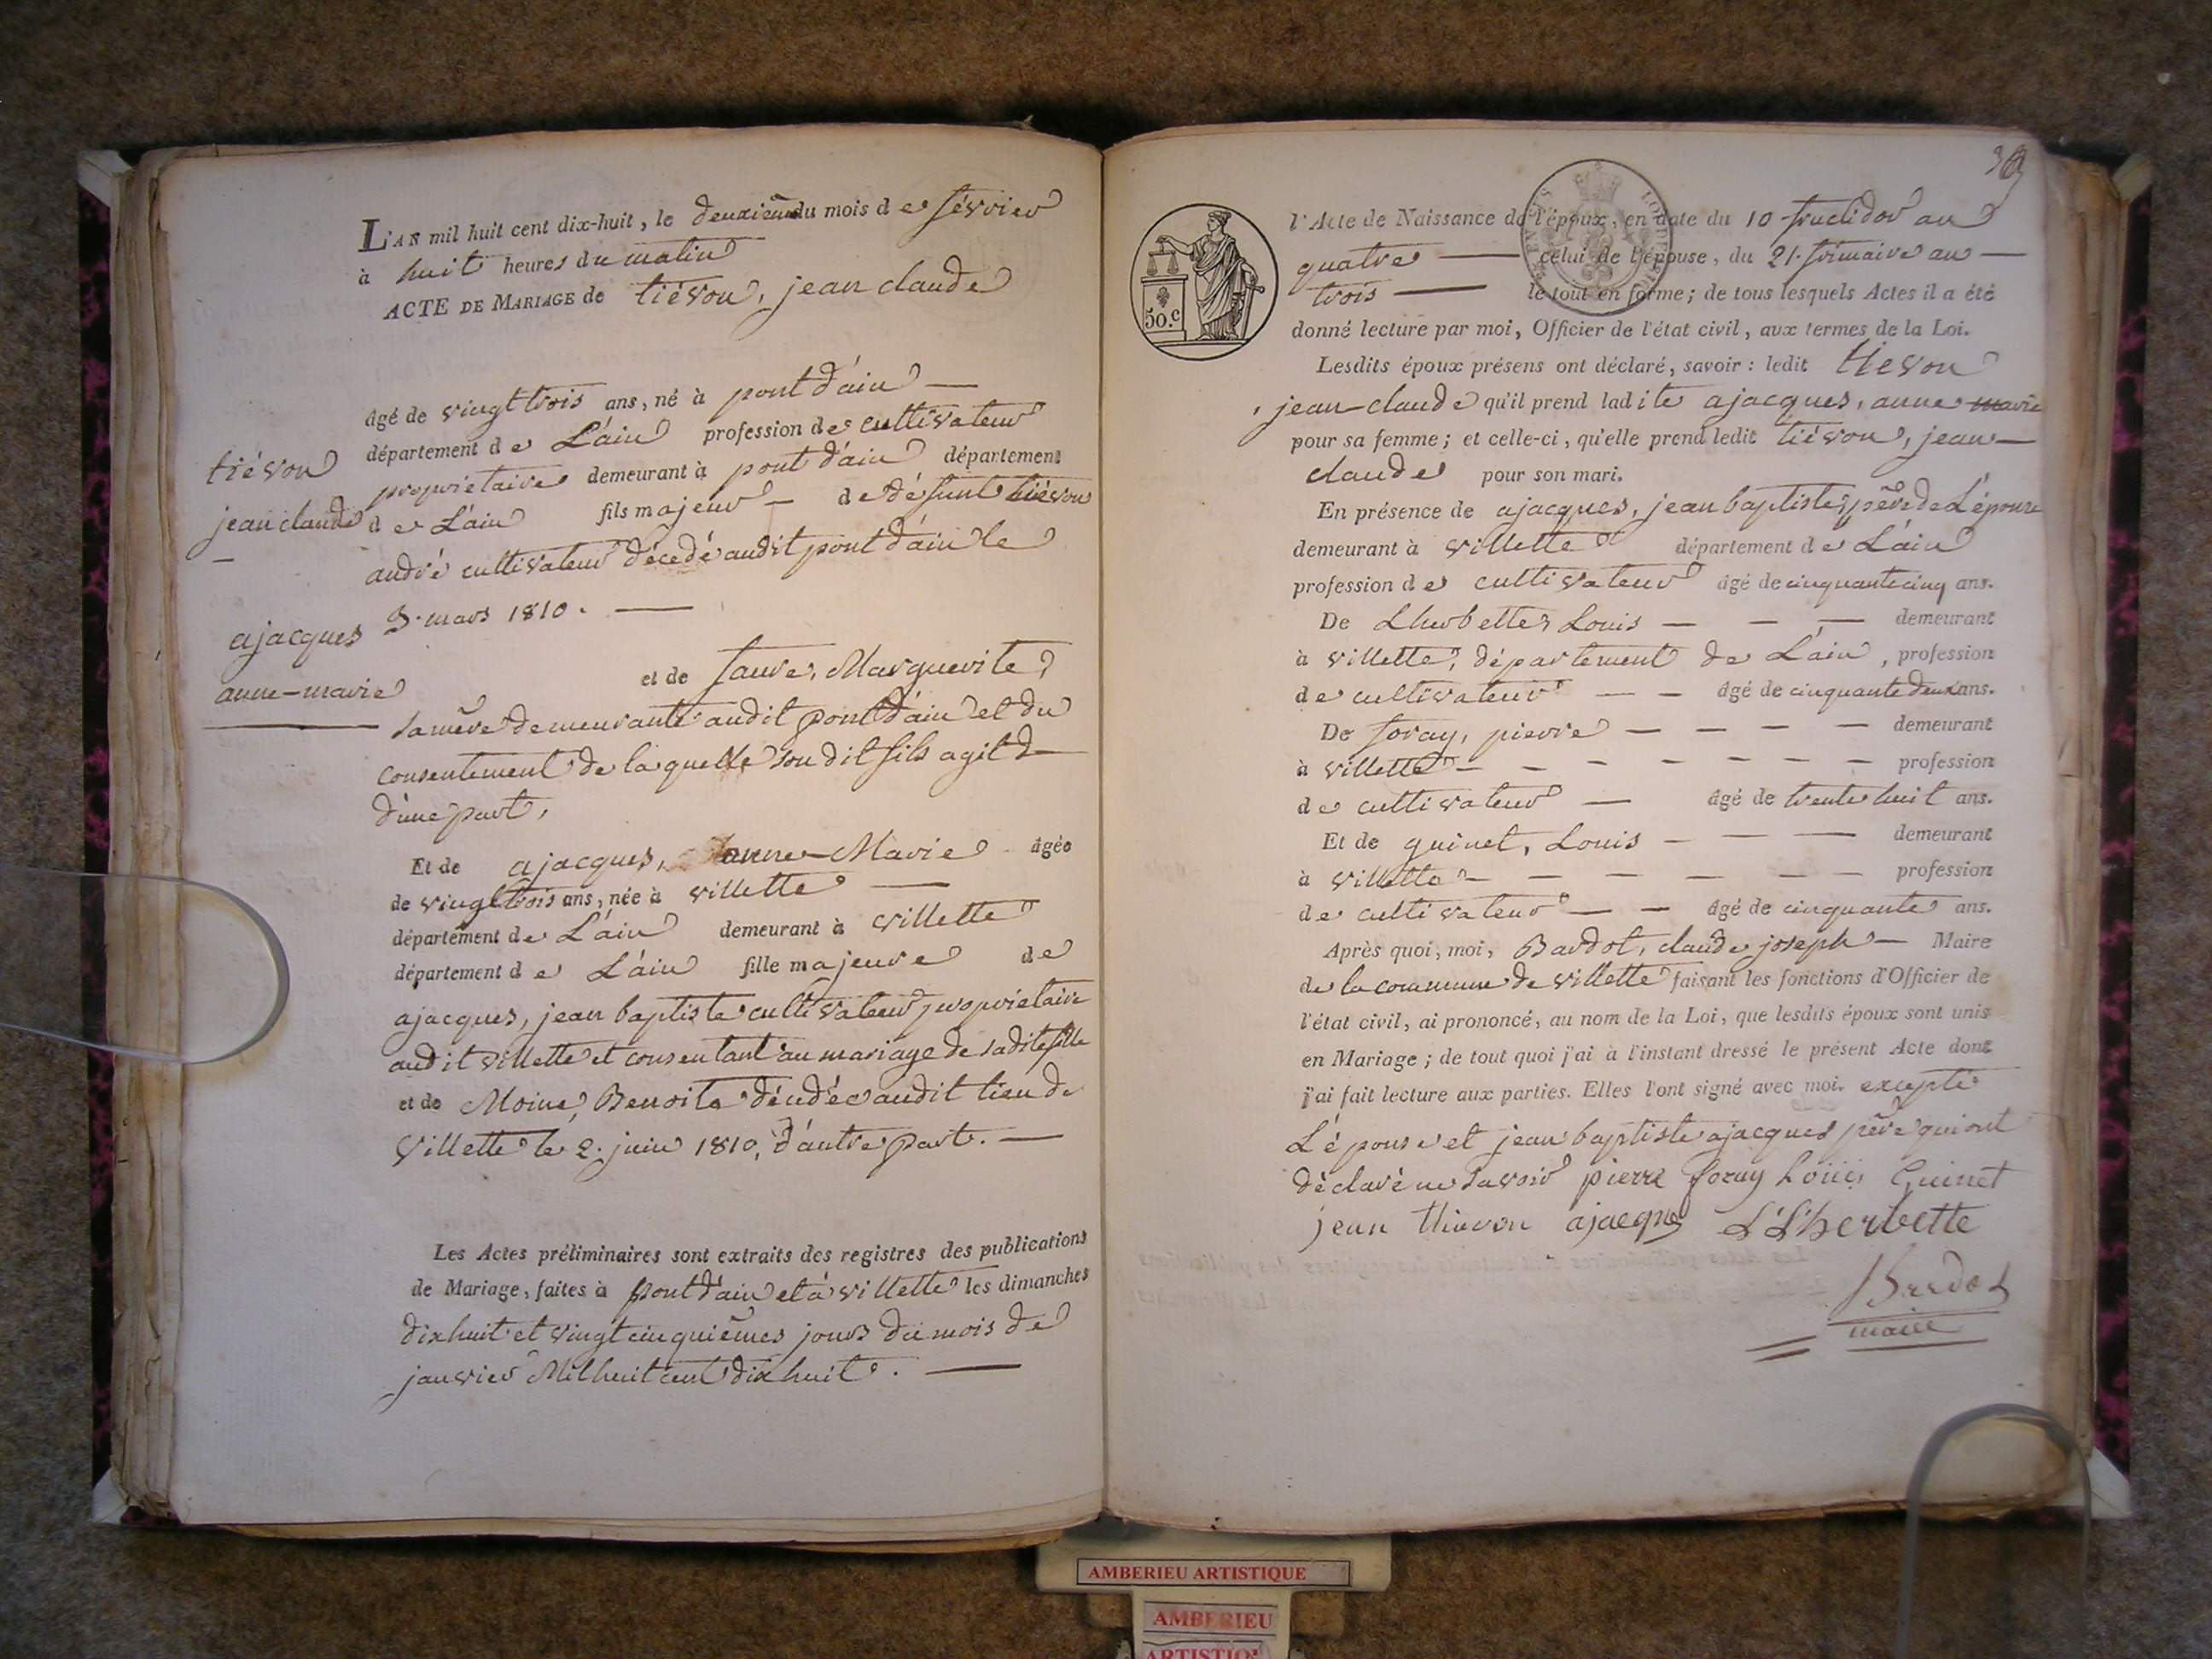 L'AN mil huit cent dix-huit, le deuxième du mois de février
à huit heures du matin
ACTE DE MARIAGE de tiévon, jean claude
âgé de vingt trois ans, né à pont d'ain —
département de L'ain profession de cultivateur
propriétaire demeurant à pont d'ain département
de L'ain fils majeur — de défunt tiévon
andré cultivateur décedé audit pont d'ain le
3. mars 1810. —
et de faure, Marguerite,
sa mère demeurante audit pont d'ain et du
consentement de laquelle son dit fils agit
d'une part,
Et de ajacques, anne-Marie âgée
de vingt trois ans, née à villette —
département de L'ain demeurant à villette
département de L'ain fille majeure de
ajacques, jean baptiste cultivateur propriétaire
audit villette et consentant au mariage de sadite fille
et de Moine, Benoite décédée audit lieu de
Villette le 2. juin 1810, d'autre part. —
Les Actes préliminaires sont extraits des registres des publications
de Mariage, faites à pont d'ain et à villette les dimanches
dix huit et vingt cinquièmes jours du mois de
janvier Mil huit cent dix huit. —
tiévon
jean claude
—
ajacques
anne-marie
l'Acte de Naissance de l'époux, en date du 10 fructidor an
quatre — celui de l'épouse, du 21. frimaire an —
trois — le tout en forme; de tous lesquels Actes il a été
donné lecture par moi, Officier de l'état civil, aux termes de la Loi.
50.c
Lesdits époux présens ont déclaré, savoir: ledit tievon
, jean-claude qu'il prend ladite ajacques, anne marie
pour sa femme; et celle-ci, qu'elle prend ledit tiévon, jean —
claude pour son mari.
En présence de ajacques, jean baptiste, père de L'épouse
demeurant à villette département de L'ain
profession de cultivateur âgé de cinquante cinq ans.
De Lherbette, Louis — — — demeurant
à villette, département de L'ain, profession
de cultivateur — — âgé de cinquante deux ans.
De foray, pierre — — — — demeurant
à villette — — — — — — — profession
de cultivateur — âgé de trente huit ans.
Et de guinet, Louis — — — demeurant
à villette — — — — — — profession
de cultivateur — — âgé de cinquante ans.
Après quoi, moi, Bardot, claude joseph — Maire
de la commune de villette faisant les fonctions d'Officier de
l'état civil, ai prononcé, au nom de la Loi, que lesdits époux sont unis
en Mariage; de tout quoi j'ai à l'instant dressé le présent Acte dont
j'ai fait lecture aux parties. Elles l'ont signé avec moi. excepté
L'épouse et jean baptiste ajacques père qui ont
déclaré ne savoir pierre foray Louis Guinet
jean thievon ajacques L Lherbette
Bardot
maire
AMBERIEU ARTISTIQUE
AMBERIEU
ARTISTIQ